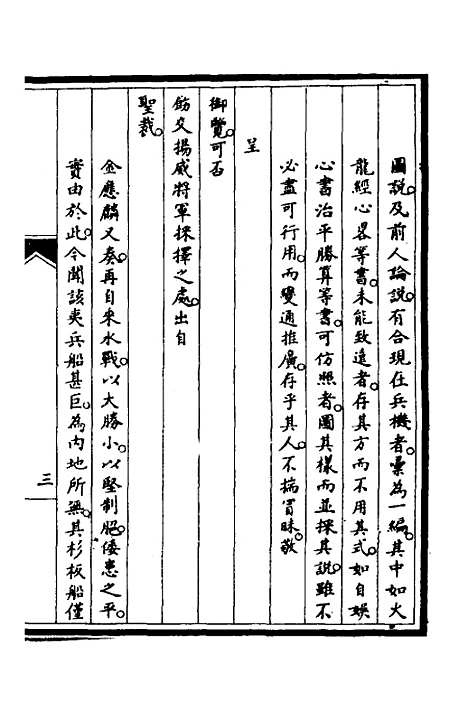 圖說。及前人論說。有合現在兵機者。彙為一編。其中如火
龍經心畧等書。未能致遠者。存其方而不用其式。如自娛
心書治平勝算等書。可仿照者。圖其樣而並採其說。雖不
必盡可行用。而變通推廣。存乎其人。不揣冒昧。敬
呈
御覽。可否
飭交揚威將軍採擇之處。出自
聖裁。
金應麟又奏。再自來水戰。以大勝小。以堅制脃。倭患之平。
實由於此。今聞該夷兵船甚巨。為內地所無。其杉板船僅
三